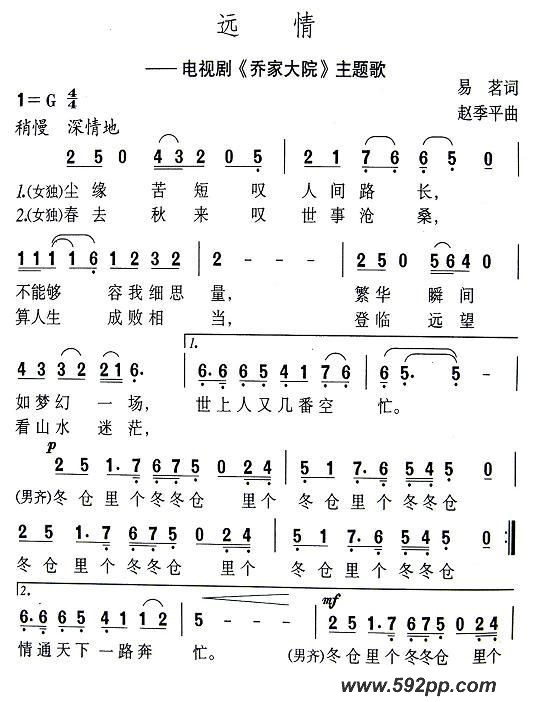 远 情
——电视剧《乔家大院》主题歌
1=G 4/4
易 茗词
稍慢 深情地
赵季平曲
2 5 0 4 3 2 0 5 | 2 1 7 6 6 5 | 5 - - 0 |
1.(女独)尘 缘 苦 短 叹 人 间 路 长,
2.(女独)春 去 秋 来 叹 世 事 沧 桑,
1 1 1 1 1 6 1 2 3 2 | 2 - - - | 2 5 0 5 6 4 0 |
不能够 容我细思 量, 繁 华 瞬 间
算人生 成败相 当, 登 临 远 望
1.
4 3 3 2 2 1 6. | 6. 6 6 5 4 1 7 6 | 6 5. 5 - |
如梦幻 一 场, 世上人又几番空 忙。
看山水 迷 茫,
p
2 5 1. 7 6 7 5 0 2 4 | 5 1 7. 6 5 4 5 0 |
(男齐)冬 仓 里个冬冬仓 里个 冬 仓 里 个 冬冬仓
2 5 1. 7 6 7 5 0 2 4 | 5 1 7. 6 5 4 5 0 :‖
冬 仓 里 个 冬冬仓 里个 冬 仓 里 个 冬冬仓
2.
mf
6. 6 6 5 4 1 1 2 | 5 - - - | 2 5 1. 7 6 7 5 0 2 4 |
情通天下 一路奔 忙。 (男齐)冬 仓 里个冬冬仓 里个
www.592pp.com